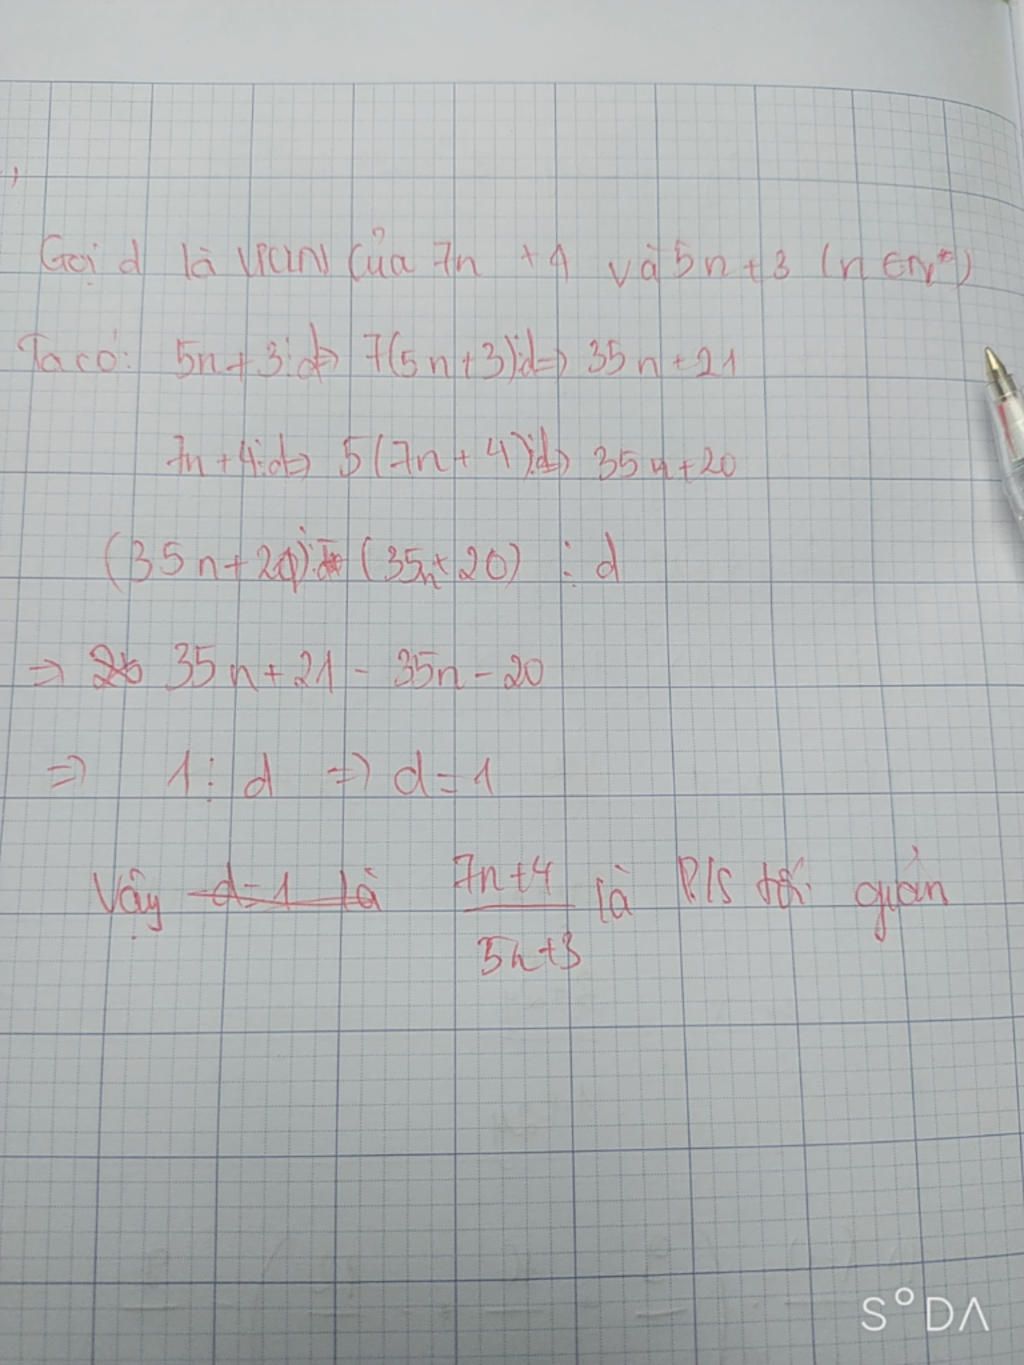 Gọi d là ƯCLN của 7n + 4 và 5n + 3 (n ∈ N*)
Ta có: 5n + 3 ⋮ d => 7(5n + 3) ⋮ d => 35n + 21
7n + 4 ⋮ d => 5(7n + 4) ⋮ d => 35n + 20
(35n + 21) - (35n + 20) ⋮ d
=> 35n + 21 - 35n - 20
=> 1 ⋮ d => d = 1
Vậy d = 1 là 7n+4 là P/S tối giản
5n+3
S°DA